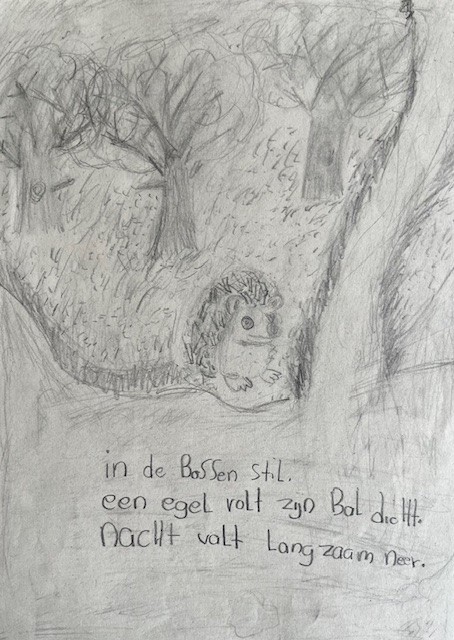 in de Bossen stil.
een egel rolt zijn Bal dicht.
Nacht valt Langzaam neer.